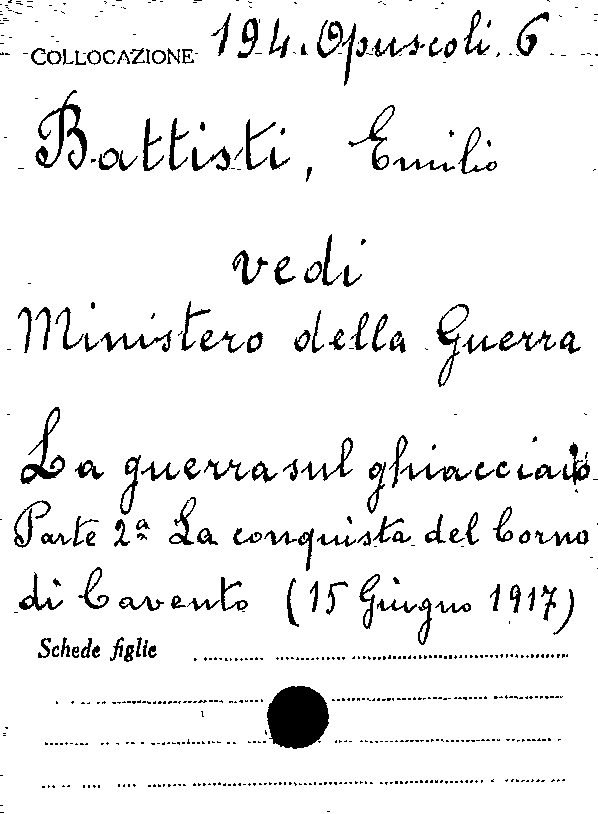 COLLOCAZIONE 194. Opuscoli. 6
Battisti, Emilio
vedi
Ministero della Guerra
La guerra sul ghiacciaio
Parte 2ª La conquista del Corno
di Cavento (15 Giugno 1917)
Schede figlie